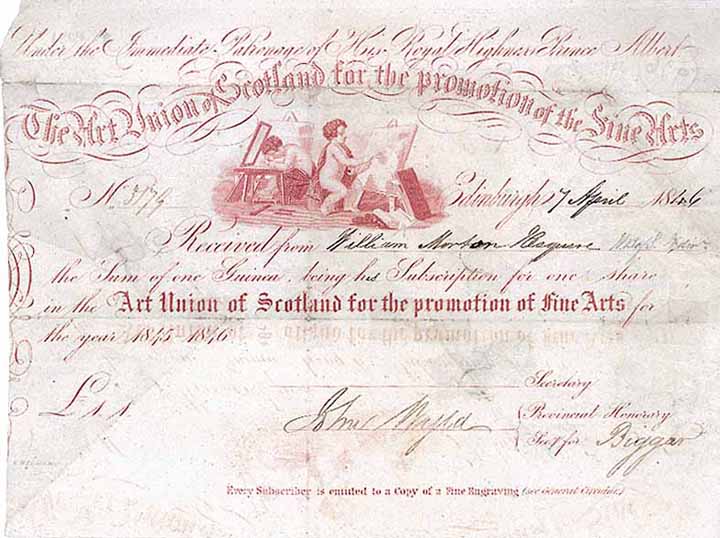 Under the Immediate Patronage of His Royal Highness Prince Albert
The Art Union of Scotland for the promotion of the Fine Arts
No. 3179 Edinburgh 7 April 1846
Received from William Morton Esquire
the Sum of one Guinea, being his Subscription for one share
in the Art Union of Scotland for the promotion of Fine Arts for
the year 1845 1846
Secretary
£1.1. John Provincial Honorary
Secy for Biggar
Every Subscriber is entitled to a Copy of a Fine Engraving (see General Circular.)